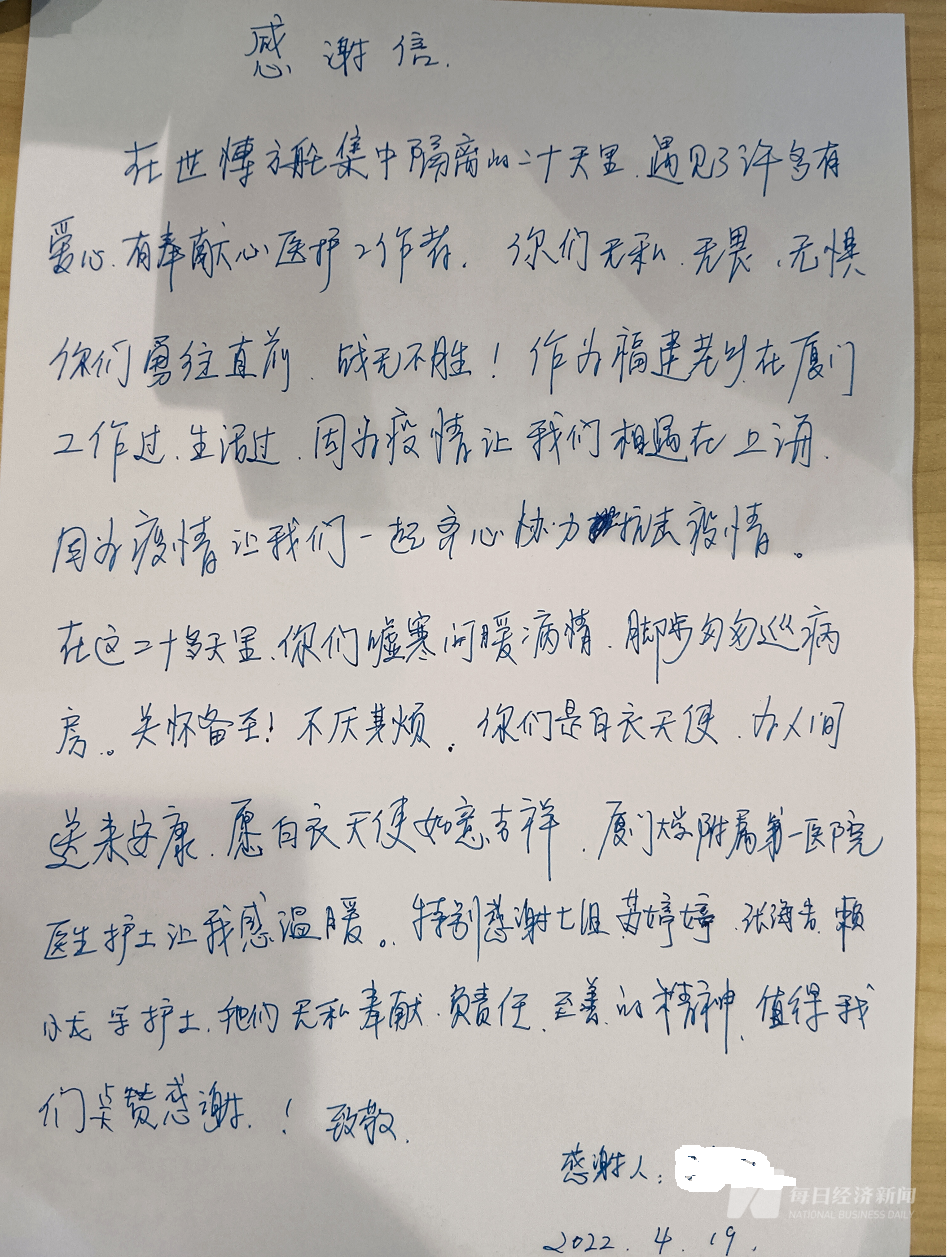 感谢信.
在世博方舱集中隔离的二十天里.遇见了许多有
爱心.有奉献心医护工作者. 你们无私.无畏.无惧
你们勇往直前.战无不胜！作为福建老乡.在厦门
工作过.生活过.因为疫情让我们相遇在上海.
因为疫情让我们一起齐心协力抗击疫情。
在这二十多天里.你们嘘寒问暖病情.脚步匆匆巡病
房。关怀备至！不厌其烦. 你们是白衣天使.为人间
送来安康.愿白衣天使如意吉祥.厦门大学附属第一医院
医生护士让我感温暖。特别感谢七组 婷婷.张海 赖
小龙 护士.她们无私奉献.负责任.至善的精神.值得我
们点赞感谢.！致敬.
感谢人：
每日经济新闻
NATIONAL BUSINESS DAILY
2022.4.19.